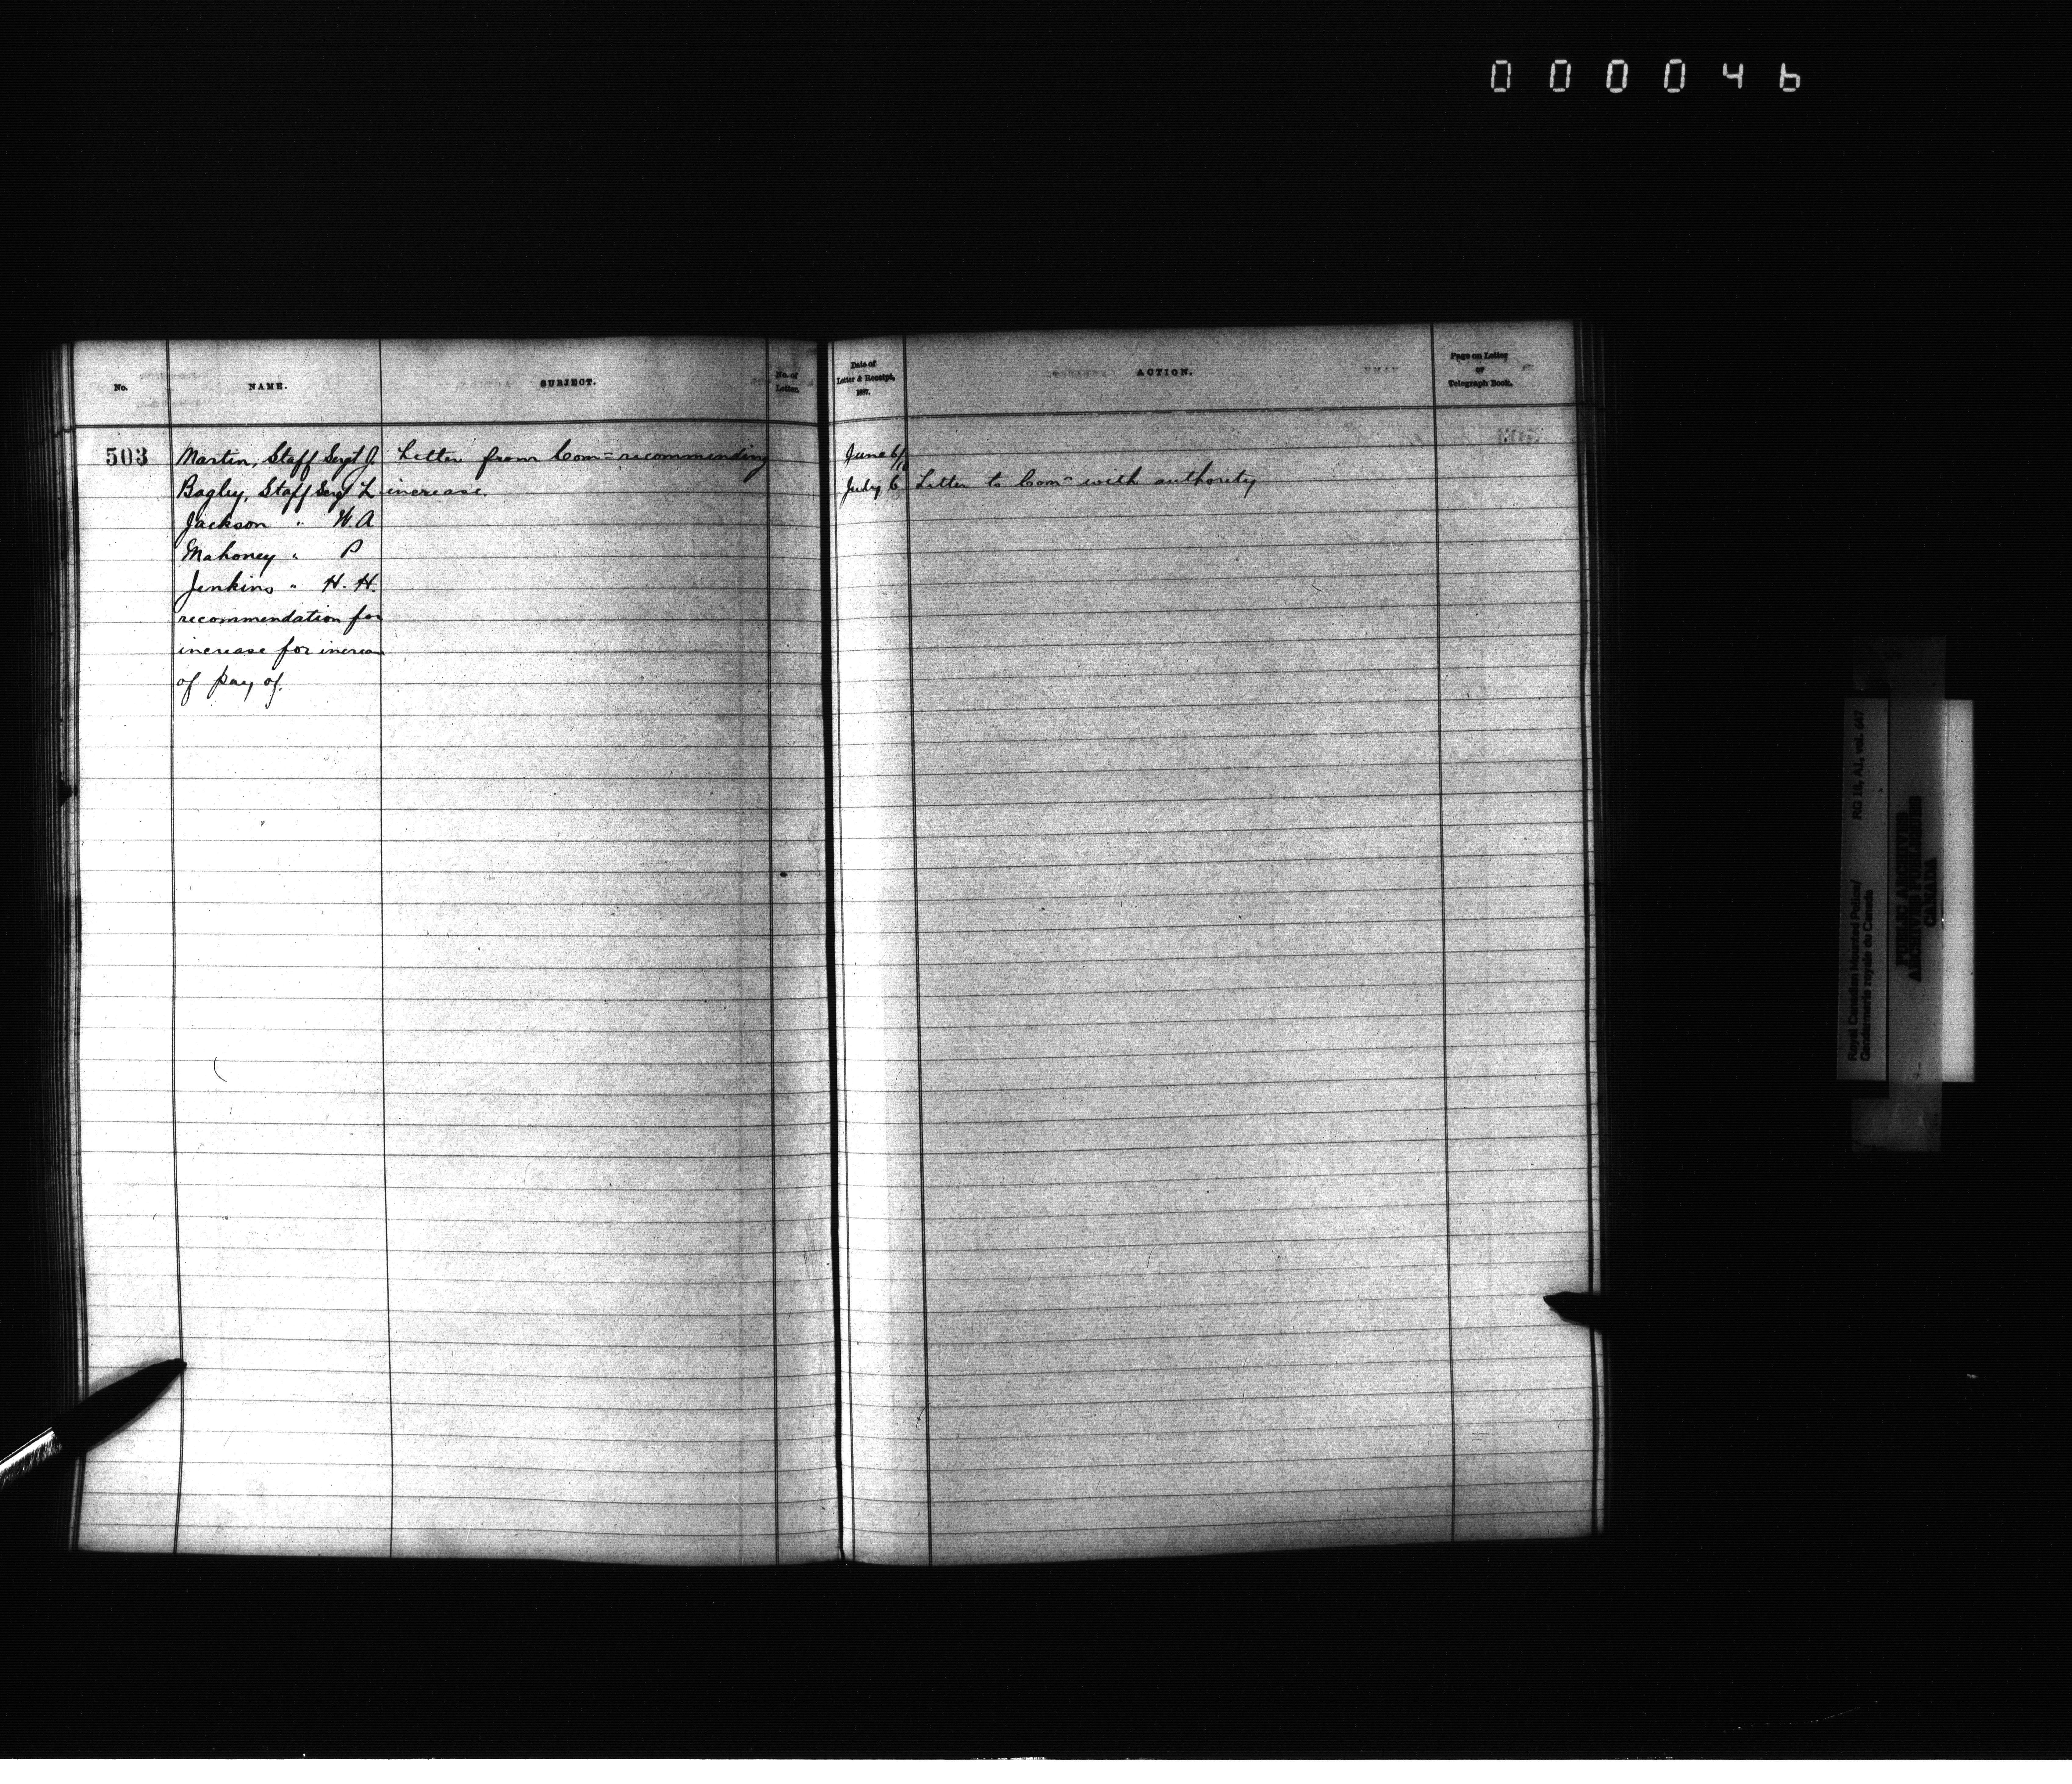 000046
No.
NAME.
SUBJECT.
No. of
Letter.
503
Martin, Staff Sergt J.
Bagley, Staff Sergt L
Jackson " W. A
Mahoney " P
Jenkins " H. H.
recommendation for
increase for increase
of pay of.
Letter from Com= recommending
increase.
Date of
Letter & Receipt,
1897.
ACTION.
Page on Letter
or
Telegraph Book.
June 6/
July 6 Letter to Com= with authority
Royal Canadian Mounted Police/ RG 18, A1, vol. 647
Gendarmerie royale du Canada
PUBLIC ARCHIVES
ARCHIVES PUBLIQUES
CANADA